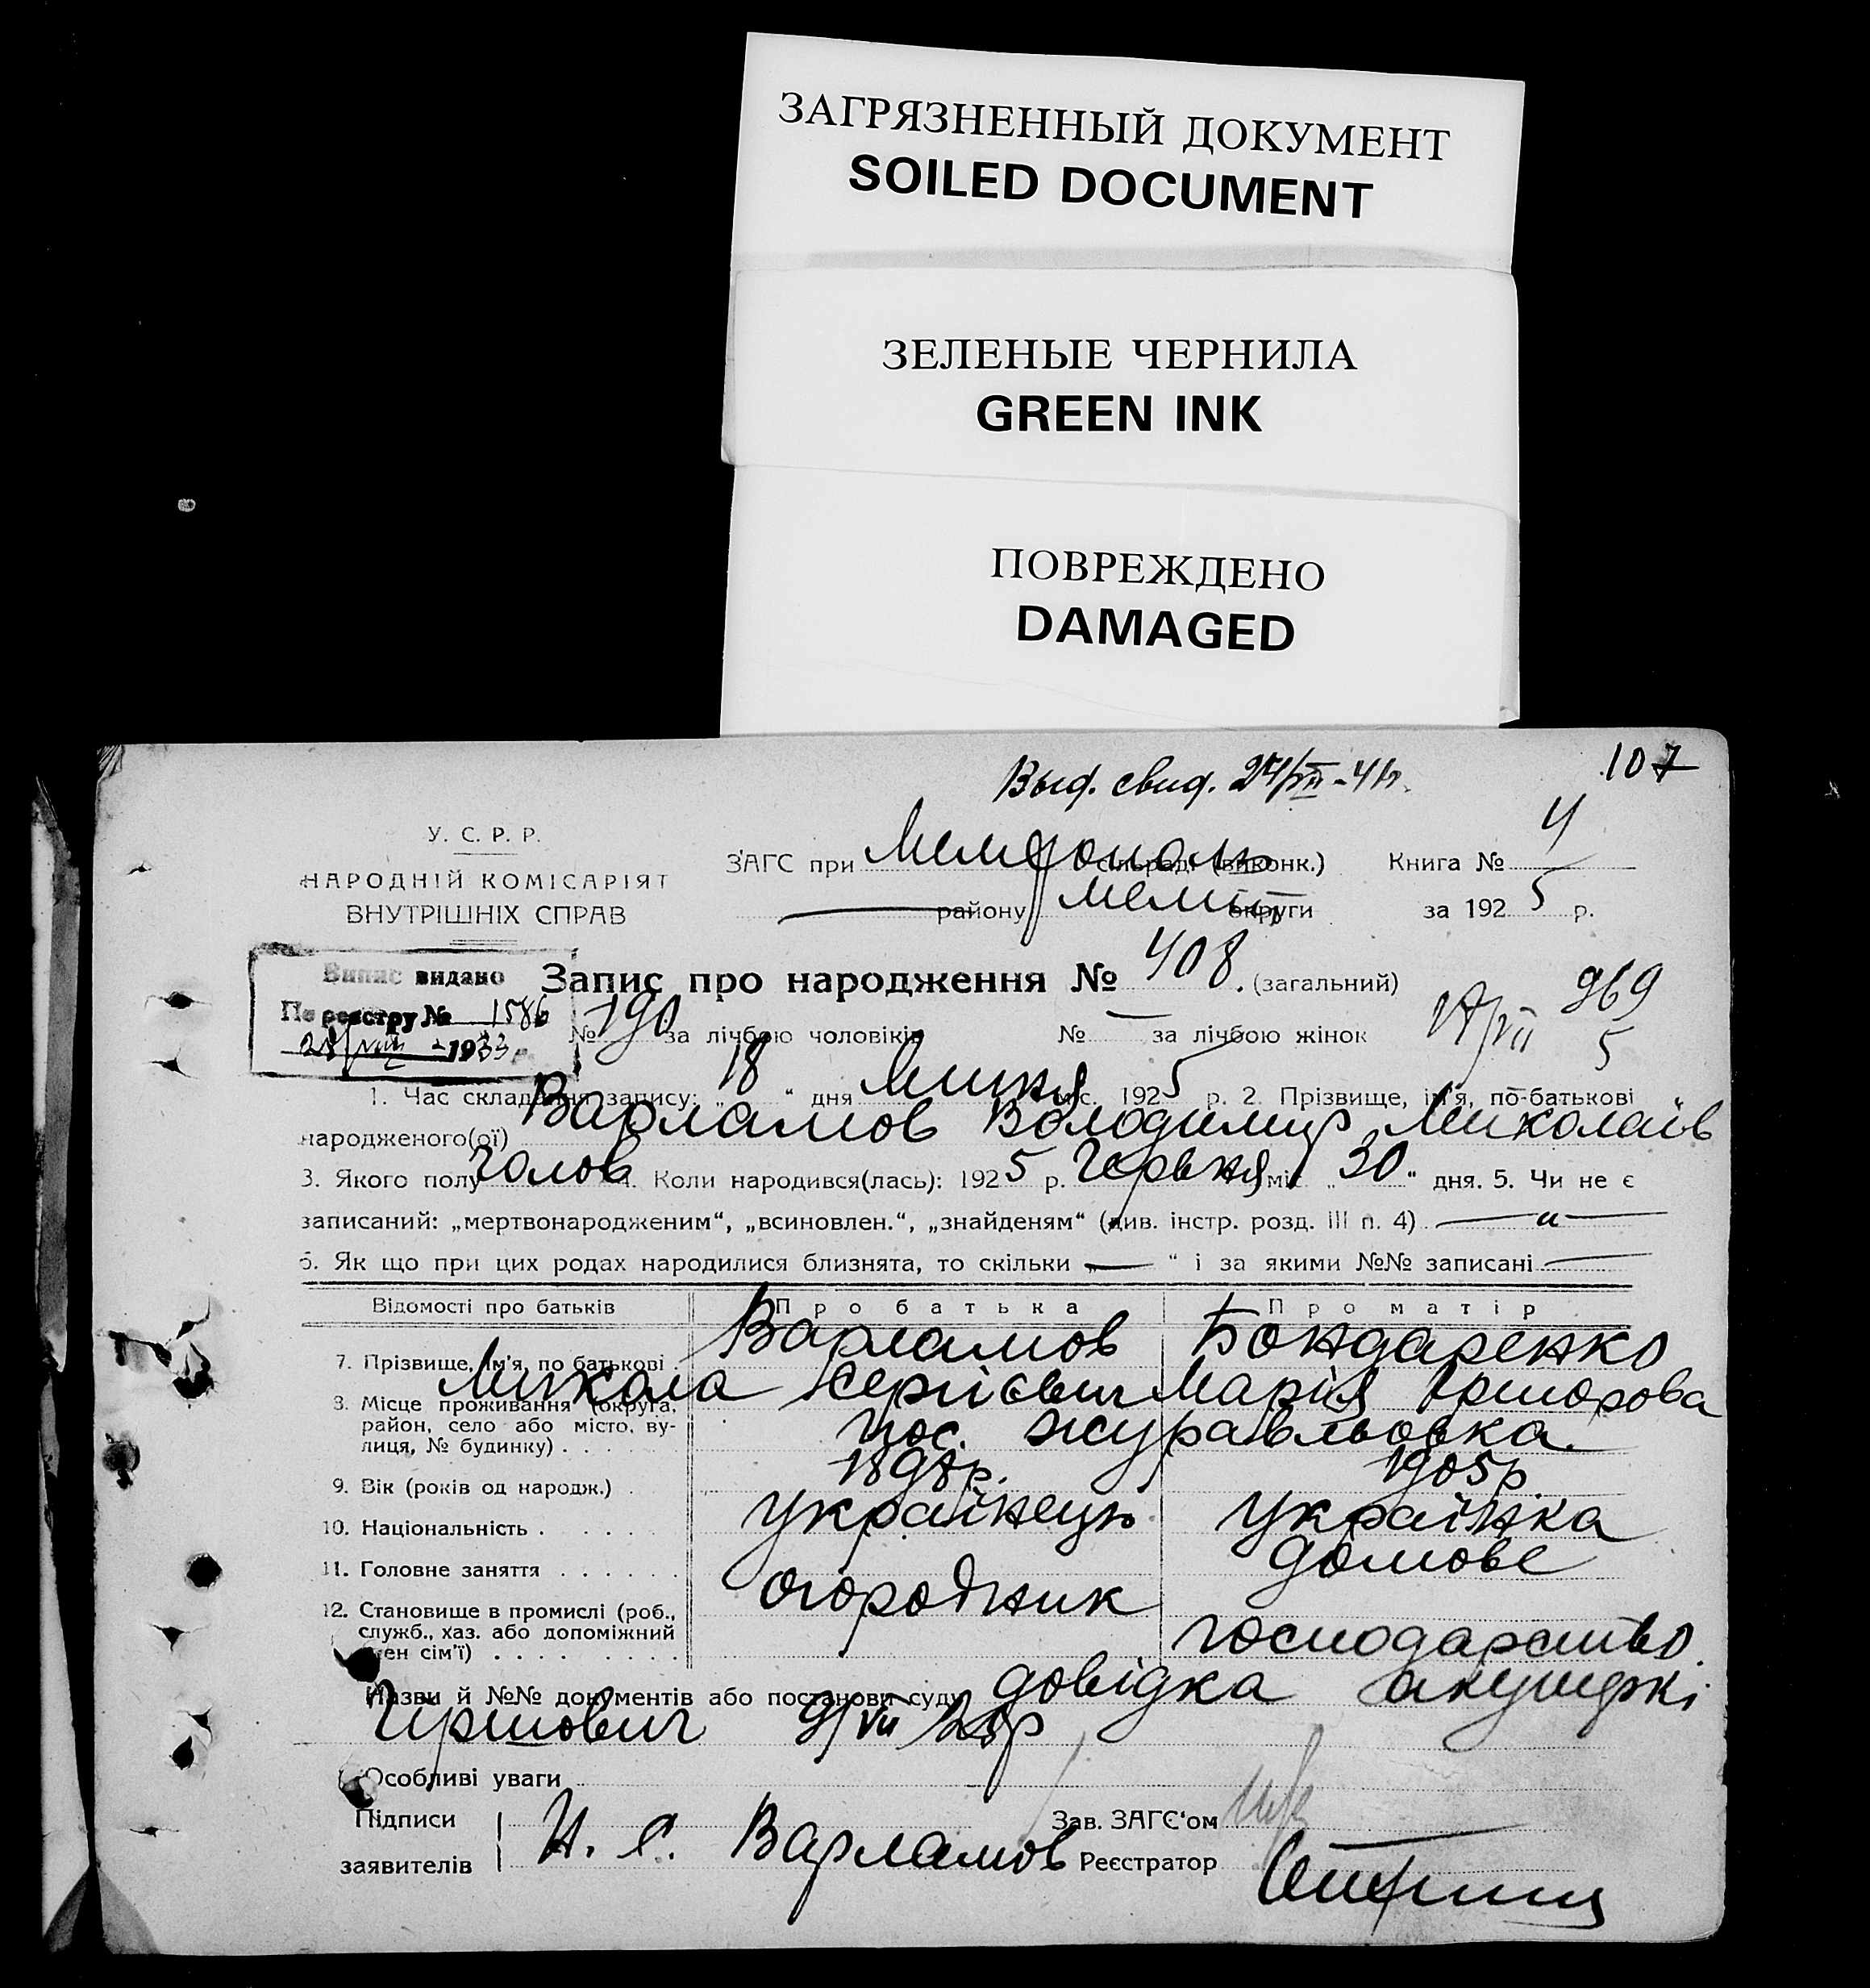 ЗАГРЯЗНЕННЫЙ ДОКУМЕНТ
SOILED DOCUMENT
ЗЕЛЕНЫЕ ЧЕРНИЛА
GREEN INK
ПОВРЕЖДЕНО
DAMAGED
107
Выд. свид.
У. С. Р. Р.
НАРОДНІЙ КОМІСАРІЯТ
ВНУТРІШНІХ СПРАВ
ЗАГС при сільраді (виконк.) Книга № 4
району округи за 1925 р.
Випис видано
По реєстру № 1586
1933
Запис про народження № 408. (загальний)
969
№ 190 за лічбою чоловіків № — за лічбою жінок
5
1. Час складання запису: „18“ дня Липня міс. 1925 р. 2. Прізвище, ім'я, по-батькові
народженого(ої) Варламов Володимир Миколаїв
3. Якого полу Чолов 4. Коли народився(лась): 1925 р. Червня міс. „30“ дня. 5. Чи не є
записаний: „мертвонародженим“, „всиновлен.“, „знайденям“ (див. інстр. розд. III п. 4) — „ —
6. Як що при цих родах народилися близнята, то скільки „—“ і за якими №№ записані —
Відомості про батьків Про батька Про матір
7. Прізвище, ім'я, по батькові Варламов Микола Сергієвич Бондаренко Марія
8. Місце проживання (округа, район, село або місто, вулиця, № будинку) . пос. Журавльовка.
9. Вік (років од народж.) . 1898р. 1905р
10. Національність . українець українка
11. Головне заняття . огородник домове
12. Становище в промислі (роб., служб., хаз. або допоміжний член сім'ї) . господарство.
Назви й №№ документів або постанови суду довідка акушерки
9/VII 25р
Особливі уваги
Підписи
заявителів
Н. С. Варламов
Зав. ЗАГС'ом
Реєстратор